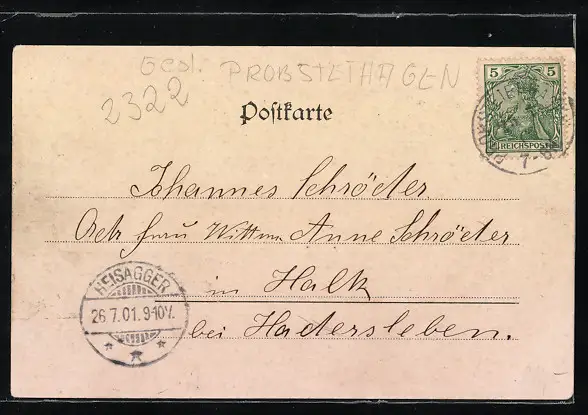 Gesl. PROBSTEIHAGEN
2322
Poſtkarte
5 5
REICHSPOST
7-8
Johannes Schröder
Adr Frau Wittwe Anne Schröder
in Halk
bei Hadersleben.
HEISAGGER
26.7.01.9-10V.